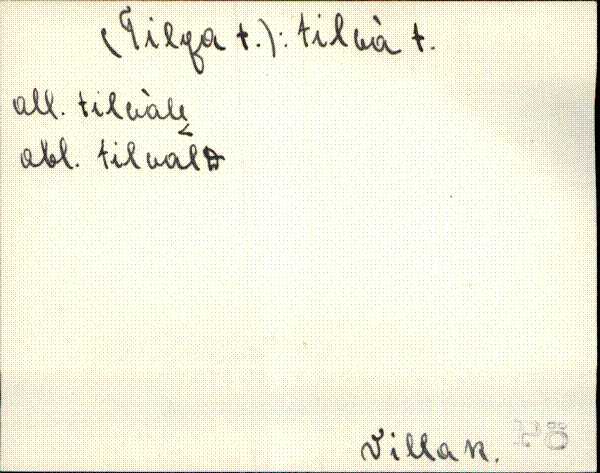 (Tilga t.): tilvà t.
all. tilvàlɛ
abl. tilvàlD
Villa k.
Pö